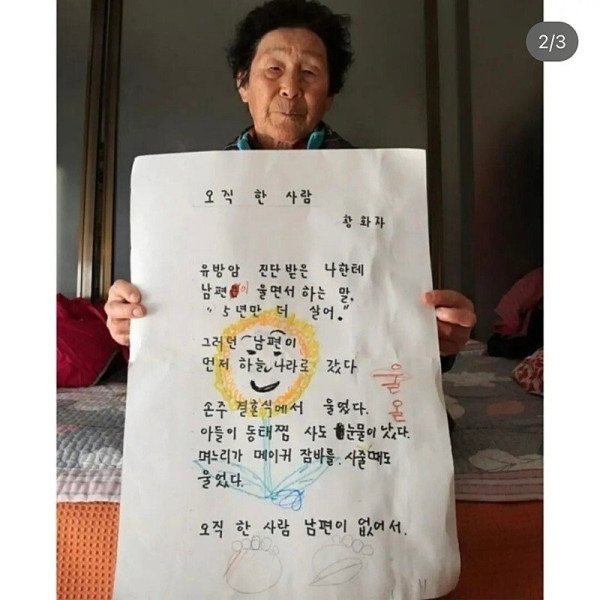 2/3
오직 한 사람
황화자
유방암 진단받은 나한테
남편이 울면서 하는 말,
"5년만 더 살어."
그러던 남편이
먼저 하늘나라로 갔다
손주 결혼식에서 울었다.
아들이 동태찜 사도 눈물이 났다.
며느리가 메이커 잠바를 사줄 때도
울었다.
오직 한 사람 남편이 없어서.